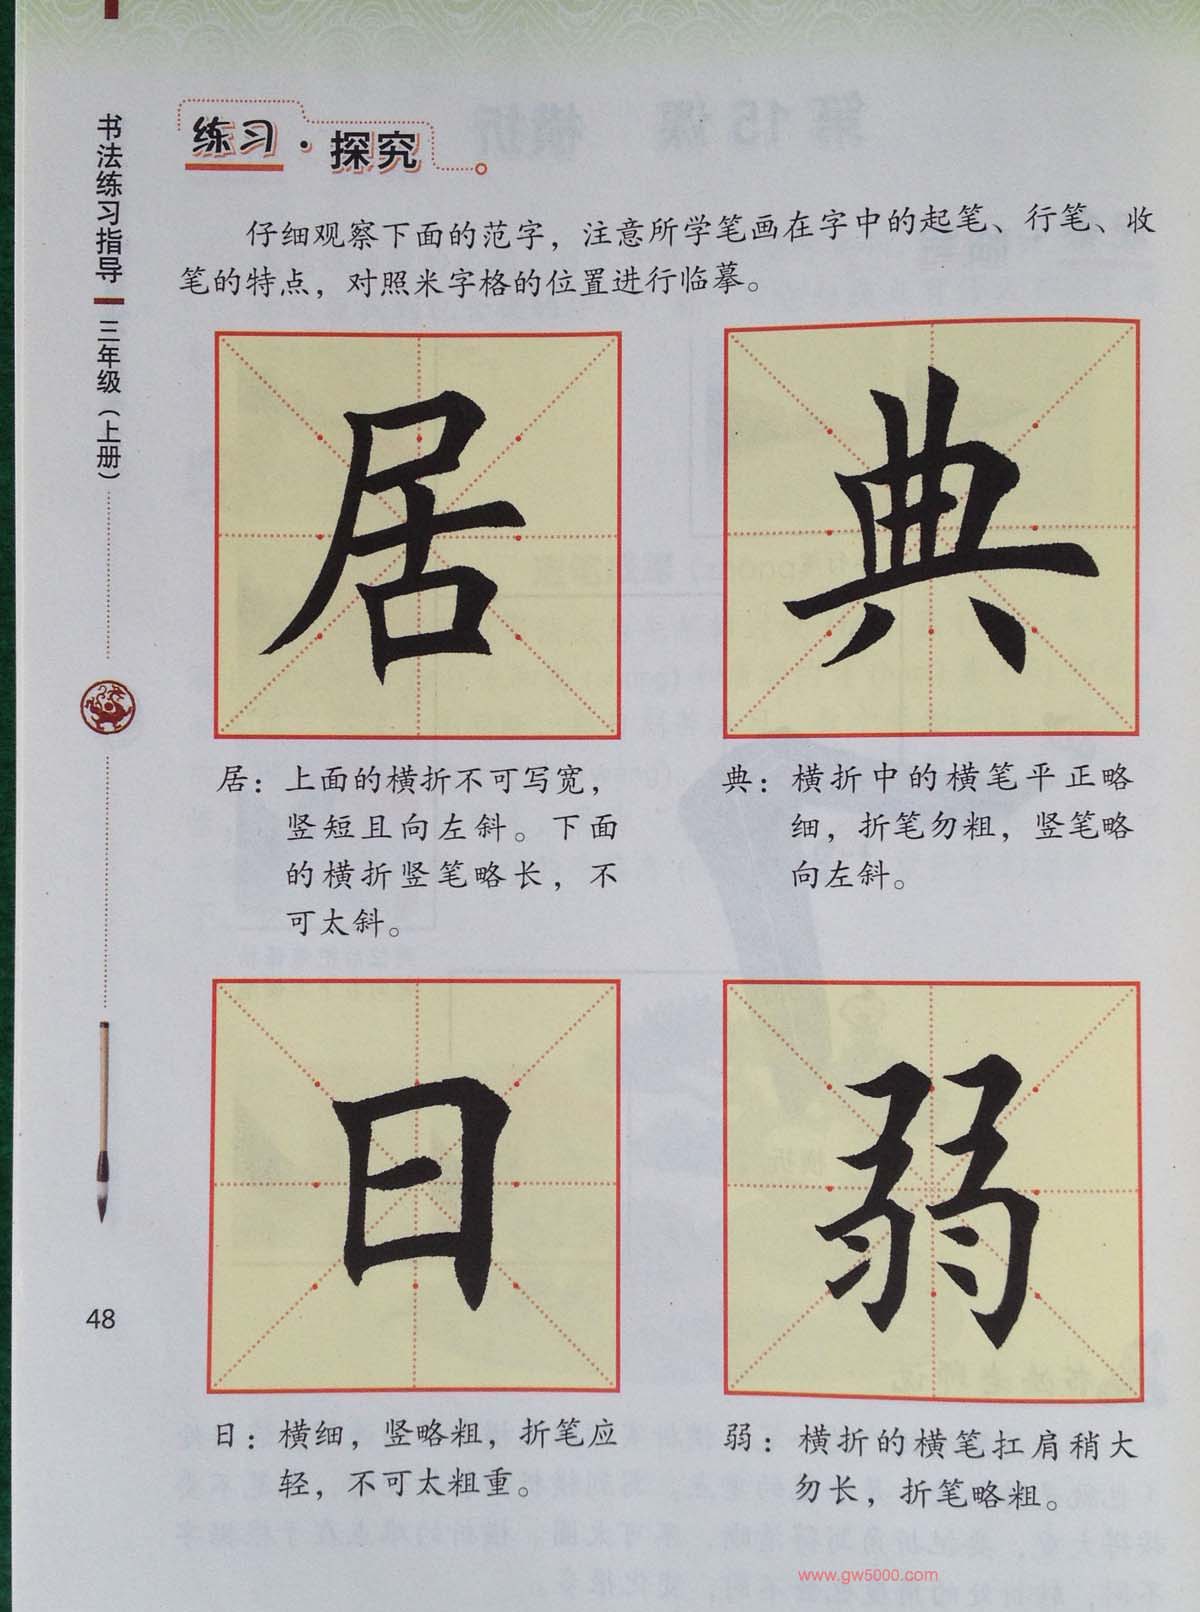 书法练习指导
三年级（上册）
48
练习·探究
仔细观察下面的范字，注意所学笔画在字中的起笔、行笔、收
笔的特点，对照米字格的位置进行临摹。
居
典
居：上面的横折不可写宽，
竖短且向左斜。下面
的横折竖笔略长，不
可太斜。
典：横折中的横笔平正略
细，折笔勿粗，竖笔略
向左斜。
日
弱
日：横细，竖略粗，折笔应
轻，不可太粗重。
弱：横折的横笔扛肩稍大
勿长，折笔略粗。
www.gw5000.com